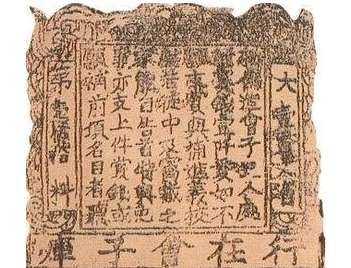 大壹貫文省
敕偽造會子犯人處
斬賞錢壹阡貫如不
願支賞與補進義校
尉若徒中及窩藏之
家能自告首特與免
罪亦支上件賞錢或
願補前項名目者聽
第壹佰拾料
行在會子庫